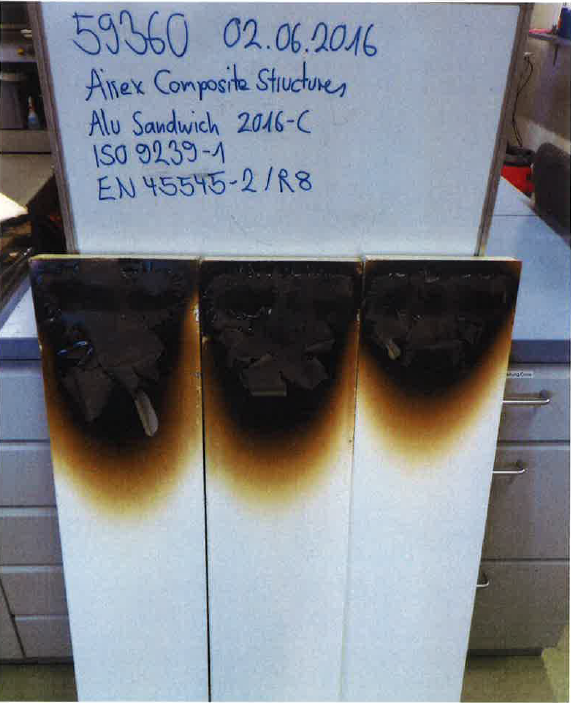 59360 02.06.2016
Airex Composite Structures
Alu Sandwich 2016-C
ISO 9239-1
EN 45545-2/R8